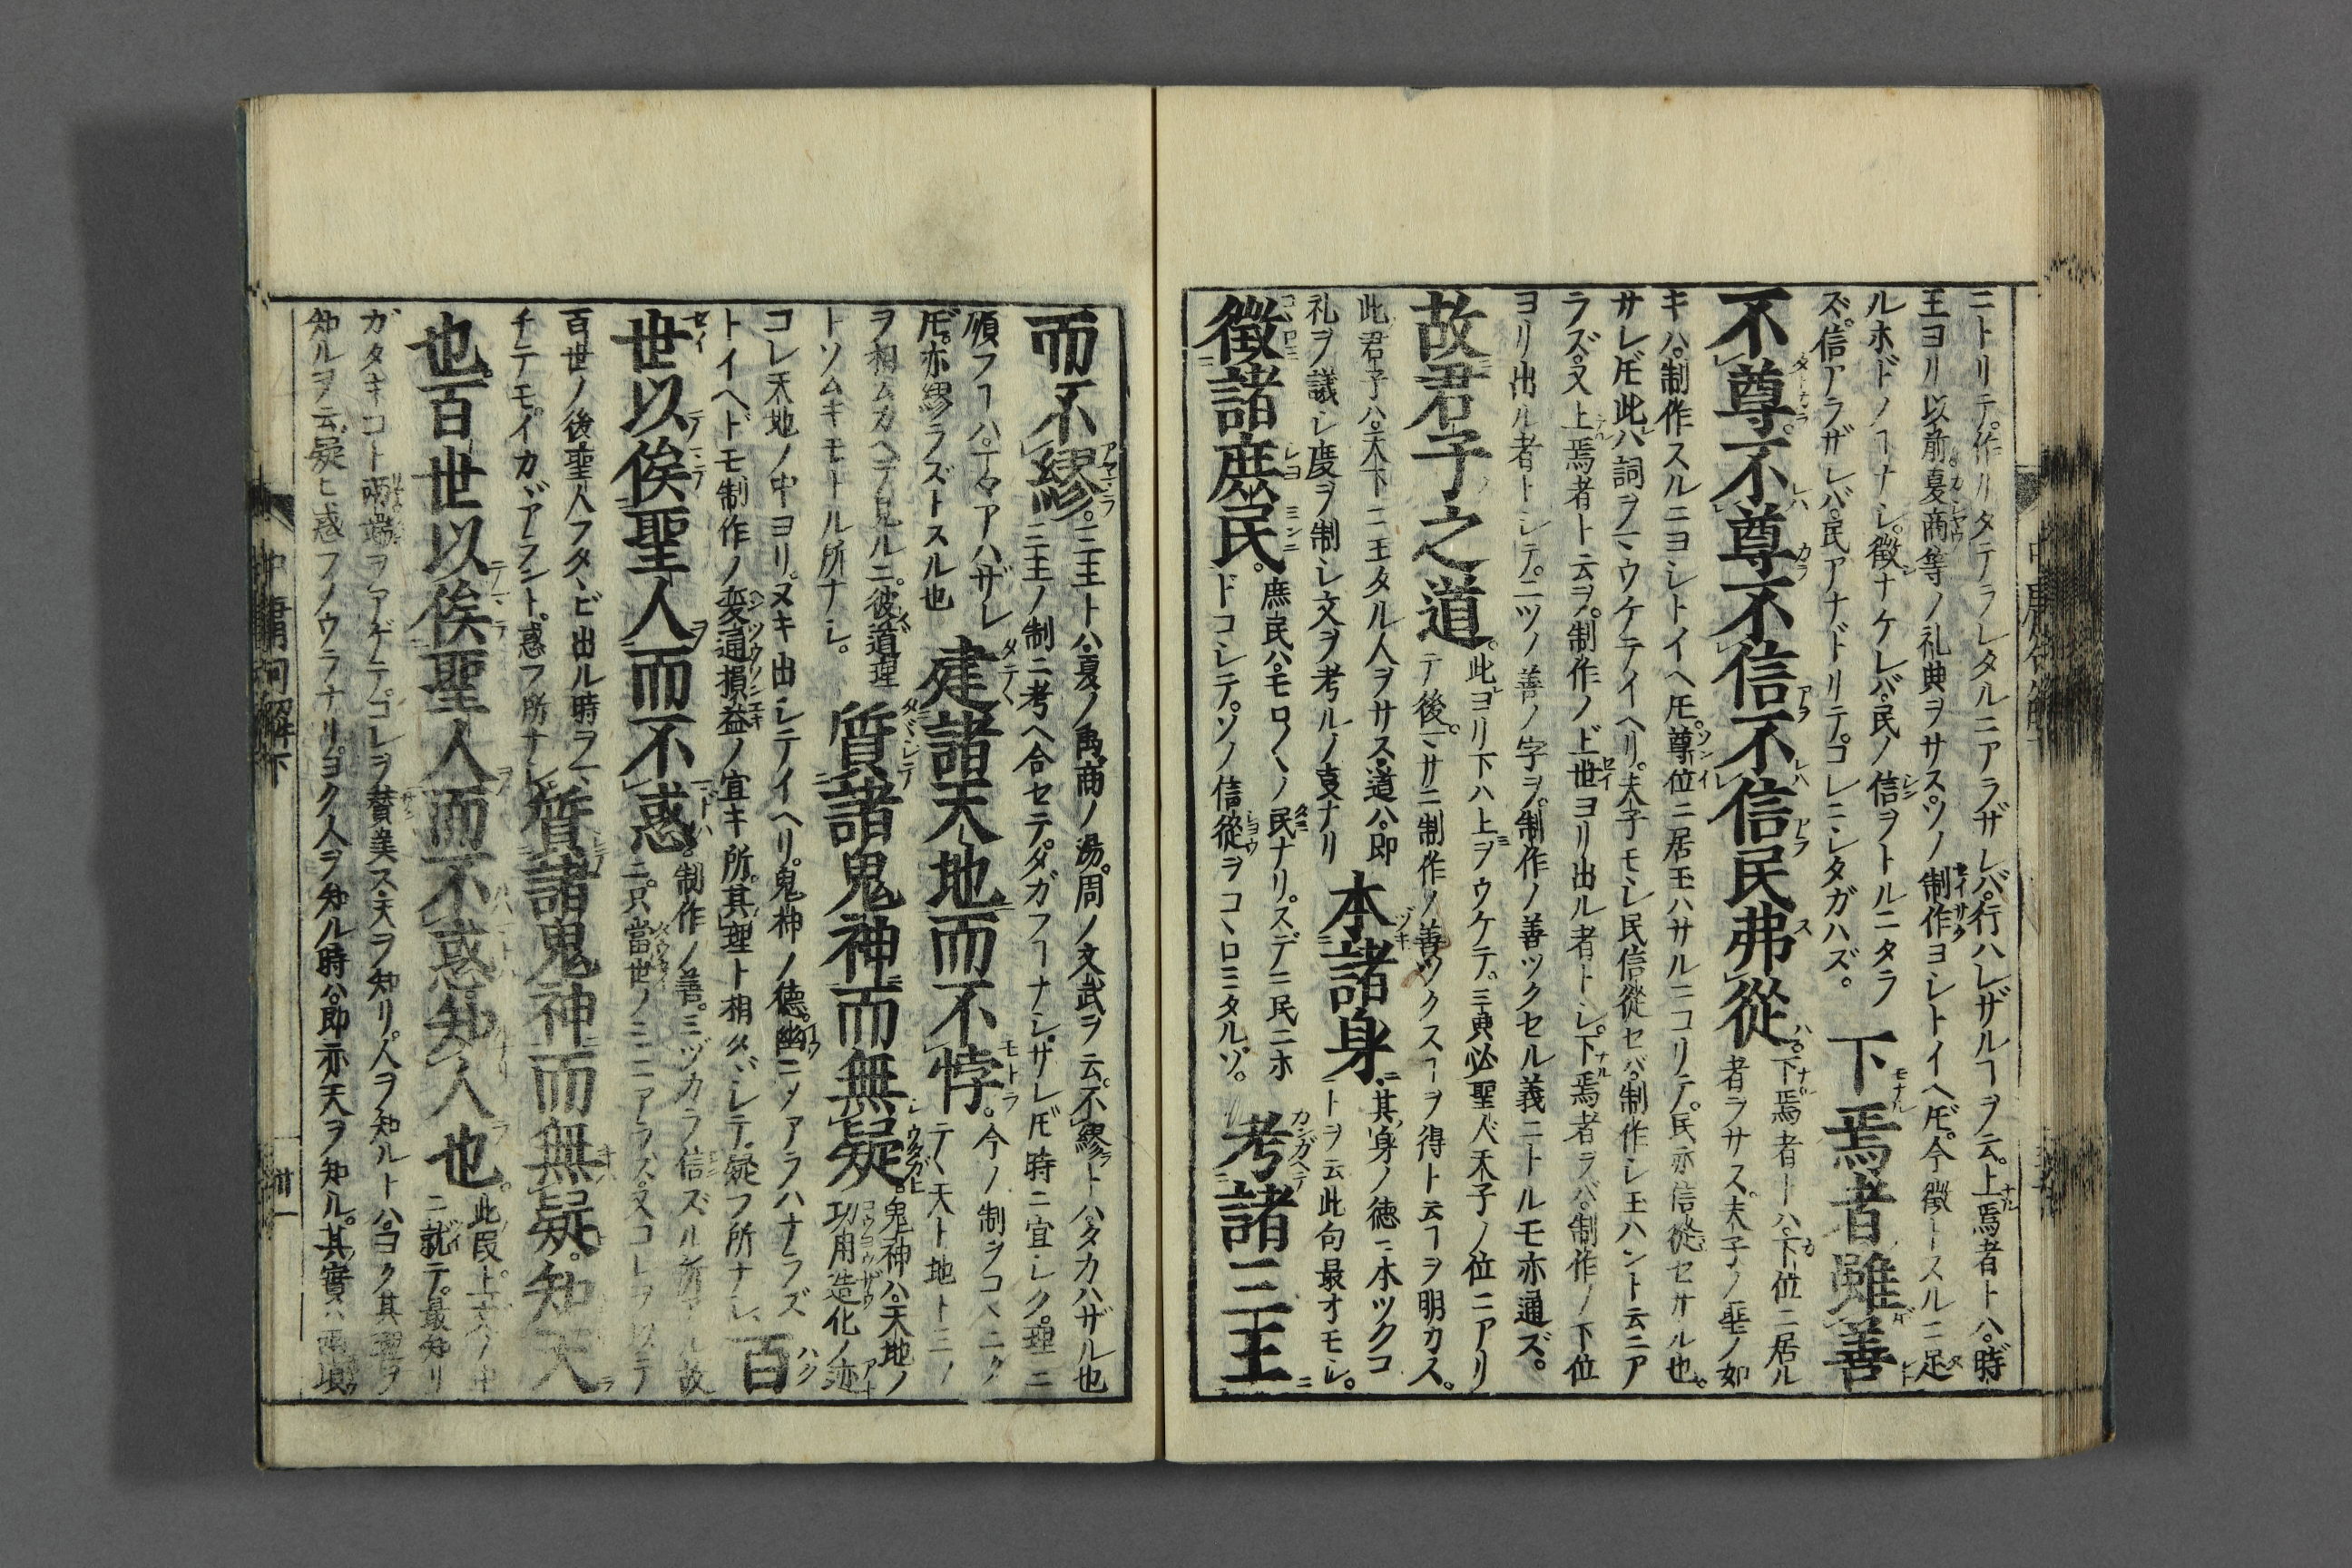 ニトリテ。作リタテラレタルニアラザレバ。行ハレザルヿヲ云。上焉者トハ。時
王ヨリ以前。夏商等ノ礼典ヲサス。ソノ制作ヨシトイヘ𪜈。今徴トスルニ足
ルホドノヿナシ。徴ナケレバ。民ノ信ヲトルニタラ
ズ。信アラザレバ。民アナドリテ。コレニシタガハズ。
下焉者雖善
不尊不尊不信不信民弗從
下焉者トハ。下位ニ居ル
者ヲサス。夫子ノ聖ノ如
キハ。制作スルニヨシトイヘ𪜈。尊位ニ居玉ハサルニコリテ。民亦信從セサル也。
サレ𪜈此ハ詞ヲマウケテイヘリ。夫子モシ民信從セバ。制作シ玉ハント云ニア
ラズ。又上焉者ト云ヲ。制作ノ上世ヨリ出ル者トシ。下焉者ヲバ。制作ノ下位
ヨリ出ル者トシテ。二ツノ善ノ字ヲ。制作ノ善ツクセル義ニトルモ亦通ズ。
故君子之道
此ヨリ下ハ上ヲウケテ。三重必聖人天子ノ位ニアリ
テ後。マサニ制作ノ善ツクスヿヲ得ト云ヿヲ明カス。
此君子ハ。天下ニ王タル人ヲサス。道ハ。即
礼ヲ議シ度ヲ制シ文ヲ考ルノ事ナリ
本諸身
其身ノ徳ニ本ツクコ
トヲ云此句最オモシ。
徴諸庶民
庶民ハ。モロ〱ノ民ナリ。スデニ民ニホ
ドコシテ。ソノ信從ヲコヽロミタルソ。
考諸三王
而不繆
三王トハ。夏ノ禹。商ノ湯。周ノ文武ヲ云。不繆トハ。タカハザル也
三王ノ制ニ考ヘ合セテ。タガフヿナシ。サレ𪜈時ニ宜シク。理ニ
順フヿハ。マヽアハザレ
𪜈。亦繆ラズトスル也
建諸天地而不悖
今ノ制ヲコヽニタ
テヽ天ト地ト三ノ
ヲ相ムカヘテ見ルニ。彼道理
トソムキモトル所ナシ。
質諸鬼神而無疑
鬼神ハ。天地ノ
功用造化ノ迹
コレ天地ノ中ヨリ。ヌキ出シテイヘリ。鬼神ノ徳。幽ニメアラハナラズ
トイヘドモ制作ノ変通損益ノ宜キ所。其理ト相タヾシテ。疑フ所ナシ
百
世以俟聖人而不惑
制作ノ善。ミヅカラ信ズル所アル故
ニ。只當世ノミニアラズ。又コレヲ以テ
百世ノ後聖人フタヽビ出ル時ヲマ
チテモ。イカヾアラント。惑フ所ナシ
質諸鬼神而無疑。知天
也。百世以俟聖人而不惑知人也
此段上文ノ中
ニ就テ。最知リ
ガタキコト兩端ヲアゲテ。コレヲ賛美ス。天ヲ知リ。人ヲ知ルトハ。ヨク其理ヲ
知ルヲ云。疑ヒ惑フノウラナリ。ヨク人ヲ知ル時ハ。即亦天ヲ知ル。其實ハ兩
中庸句解下
中庸句解下
卅一